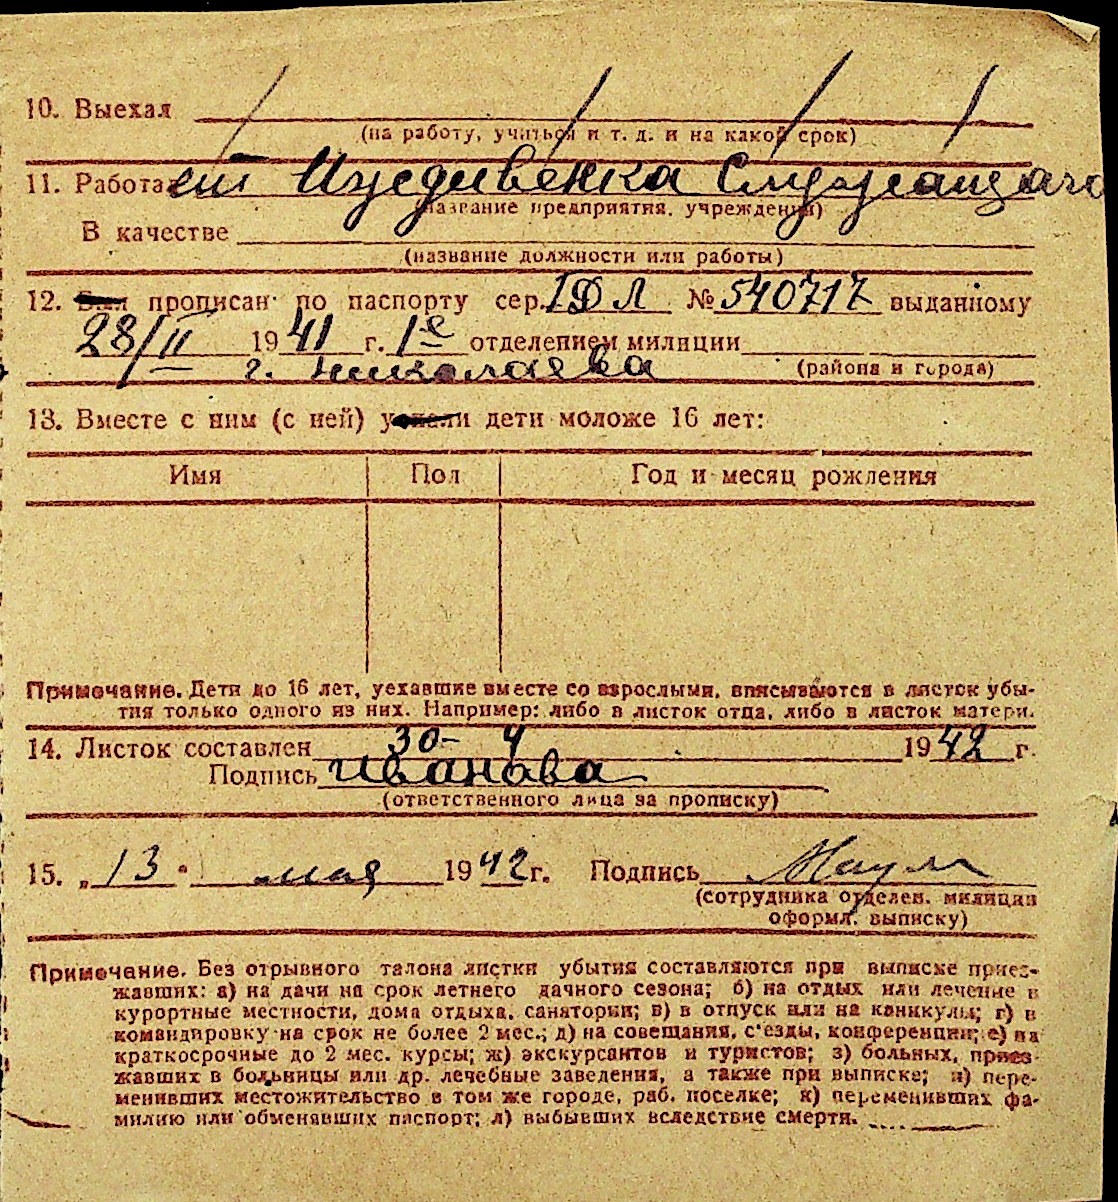 10. Выехал
(на работу, учиться и т. д. и на какой срок)
11. Работает Иждивенка Служащаго
(название предприятия, учреждения)
В качестве
(название должности или работы)
12. Был прописан по паспорту сер. IДЛ № 540717 выданному
28/II 1941 г. 1е отделением милиции
г. Николаева (района и города)
13. Вместе с ним (с ней) уехали дети моложе 16 лет:
Имя Пол Год и месяц рождения
Примечание. Дети до 16 лет, уехавшие вместе со взрослыми, вписываются в листок убы-
тия только одного из них. Например: либо в листок отца, либо в листок матери.
14. Листок составлен 30- 4 1942 г.
Подпись Иванова
(ответственного лица за прописку)
15. „13" мая 1942 г. Подпись
(сотрудника отделен. милиции
оформл. выписку)
Примечание. Без отрывного талона листки убытия составляются при выписке приез-
жавших: а) на дачи на срок летнего дачного сезона; б) на отдых или лечение в
курортные местности, дома отдыха, санатории; в) в отпуск или на каникулы; г) в
командировку на срок не более 2 мес.; д) на совещания, с'езды, конференции; е) на
краткосрочные до 2 мес. курсы; ж) экскурсантов и туристов; з) больных, приез-
жавших в больницы или др. лечебные заведения, а также при выписке; и) пере-
менивших местожительство в том же городе, раб. поселке; к) переменивших фа-
милию или обменявших паспорт; л) выбывших вследствие смерти.